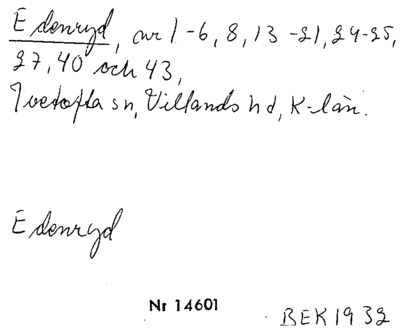 Edenryd, nr 1-6, 8, 13-21, 24-25,
27, 40 och 43,
Ivetofta sn, Villands hd, K-län.
Edenryd
Nr 14601
BEK 1932